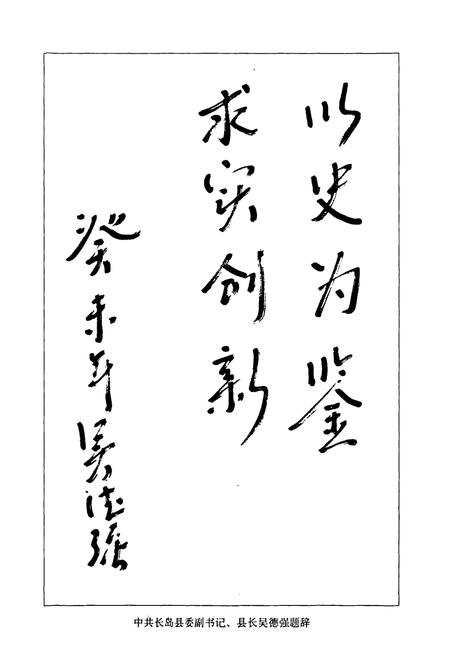 以史为鉴
求实创新
癸未年吴德强
中共长岛县委副书记、县长吴德强题辞